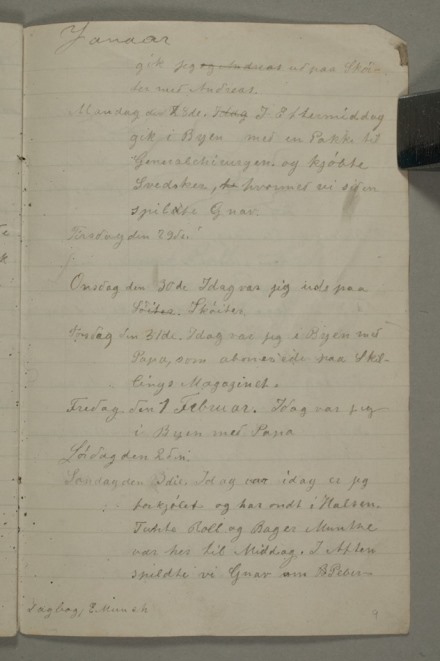 Januar
gik jeg og Andreas ud paa Skøi-
ter med Andreas.
Mandag den 28de. Idag I Eftermiddag
gik i Byen med en Pakke til
Generalchirurgen. og kjøbte
Svedsker, hvormed vi siden
spildte Gnav.
Tirsdag den 29de.
Onsdag den 30de Idag var jeg ude paa
Skøiter.
Torsdag den 31de. Idag var jeg i Byen med
Papa, som abonerede paa Skil-
lings Magazinet.
Fredag den 1 Februar. Idag var jeg
i Byen med Papa
Lørdag den 2den.
Søndag den 3die. Idag var idag er jeg
forkjølet og har ondt i Halsen.
Tante Boll og Bager Munthe
var her til Middag. I Aften
spildte vi Gnav om
Dagbog, E Munch
9